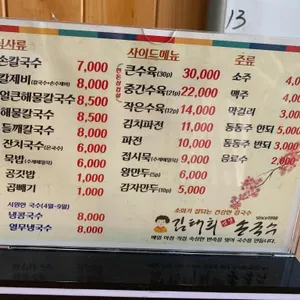 13
식사류
손칼국수 7,000
칼제비(칼국수+손수제비) 8,000
얼큰해물칼국수 8,500
해물칼국수 8,000
들깨칼국수 8,000
잔치국수(손국수) 6,000
묵밥(수제메밀묵) 6,000
공깃밥 1,000
곱빼기 1,000
시원한 국수(4월-9월)
냉콩국수 8,000
열무냉국수 8,000
사이드메뉴
큰수육(30p) 30,000
중간수육(21p) 22,000
작은수육(12p) 14,000
김치파전 11,000
파전 10,000
접시묵(수제메밀묵) 6,000
왕만두(5p) 6,000
감자만두(10p) 5,000
주류
소주 4,
맥주 4,
막걸리 3,
동동주 한되 7,
동동주 반되 3,
음료수 2,
소화가 잘되는 건강한 칼국수
김태희 손국수
since1998
매일 아침 직접 숙성한 반죽을 썰어 국수를 만듭니다.